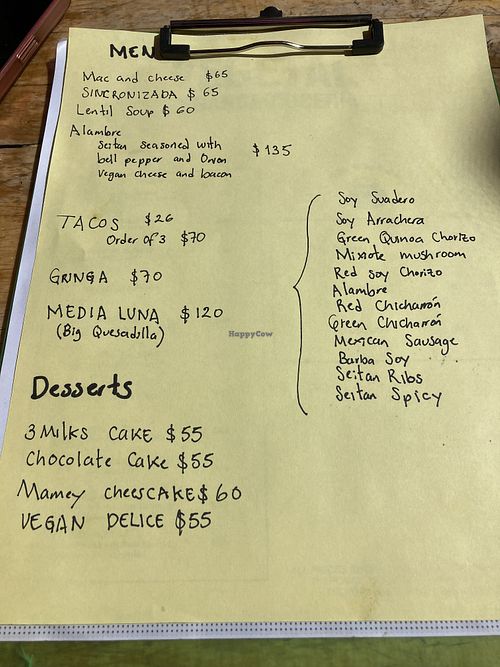 MEN
Mac and cheese $65
SINCRONIZADA $65
Lentil Soup $60
Alambre
Seitan seasoned with
bell pepper and Onion
Vegan cheese and bacon
$135
TACOS $26
Order of 3 $70
GRINGA $70
MEDIA LUNA $120
(Big Quesadilla)
Soy Suadero
Soy Arrachera
Green Quinoa Chorizo
Mixiote mushroom
Red Soy Chorizo
Alambre
Red Chicharrón
Green Chicharrón
Mexican Sausage
Barba Soy
Seitan Ribs
Seitan Spicy
HappyCow
Desserts
3 Milks CAKE $55
Chocolate Cake $55
Mamey cheesCAKE $60
VEGAN DELICE $55